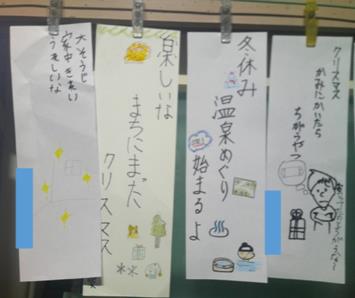 クリスマス
かみにかいたら
ちがうやつ
冬休み
温泉めぐり
始まるよ
楽しいな
まちにまだ
クリスマス
大そうじ
家中きれい
うれしいな